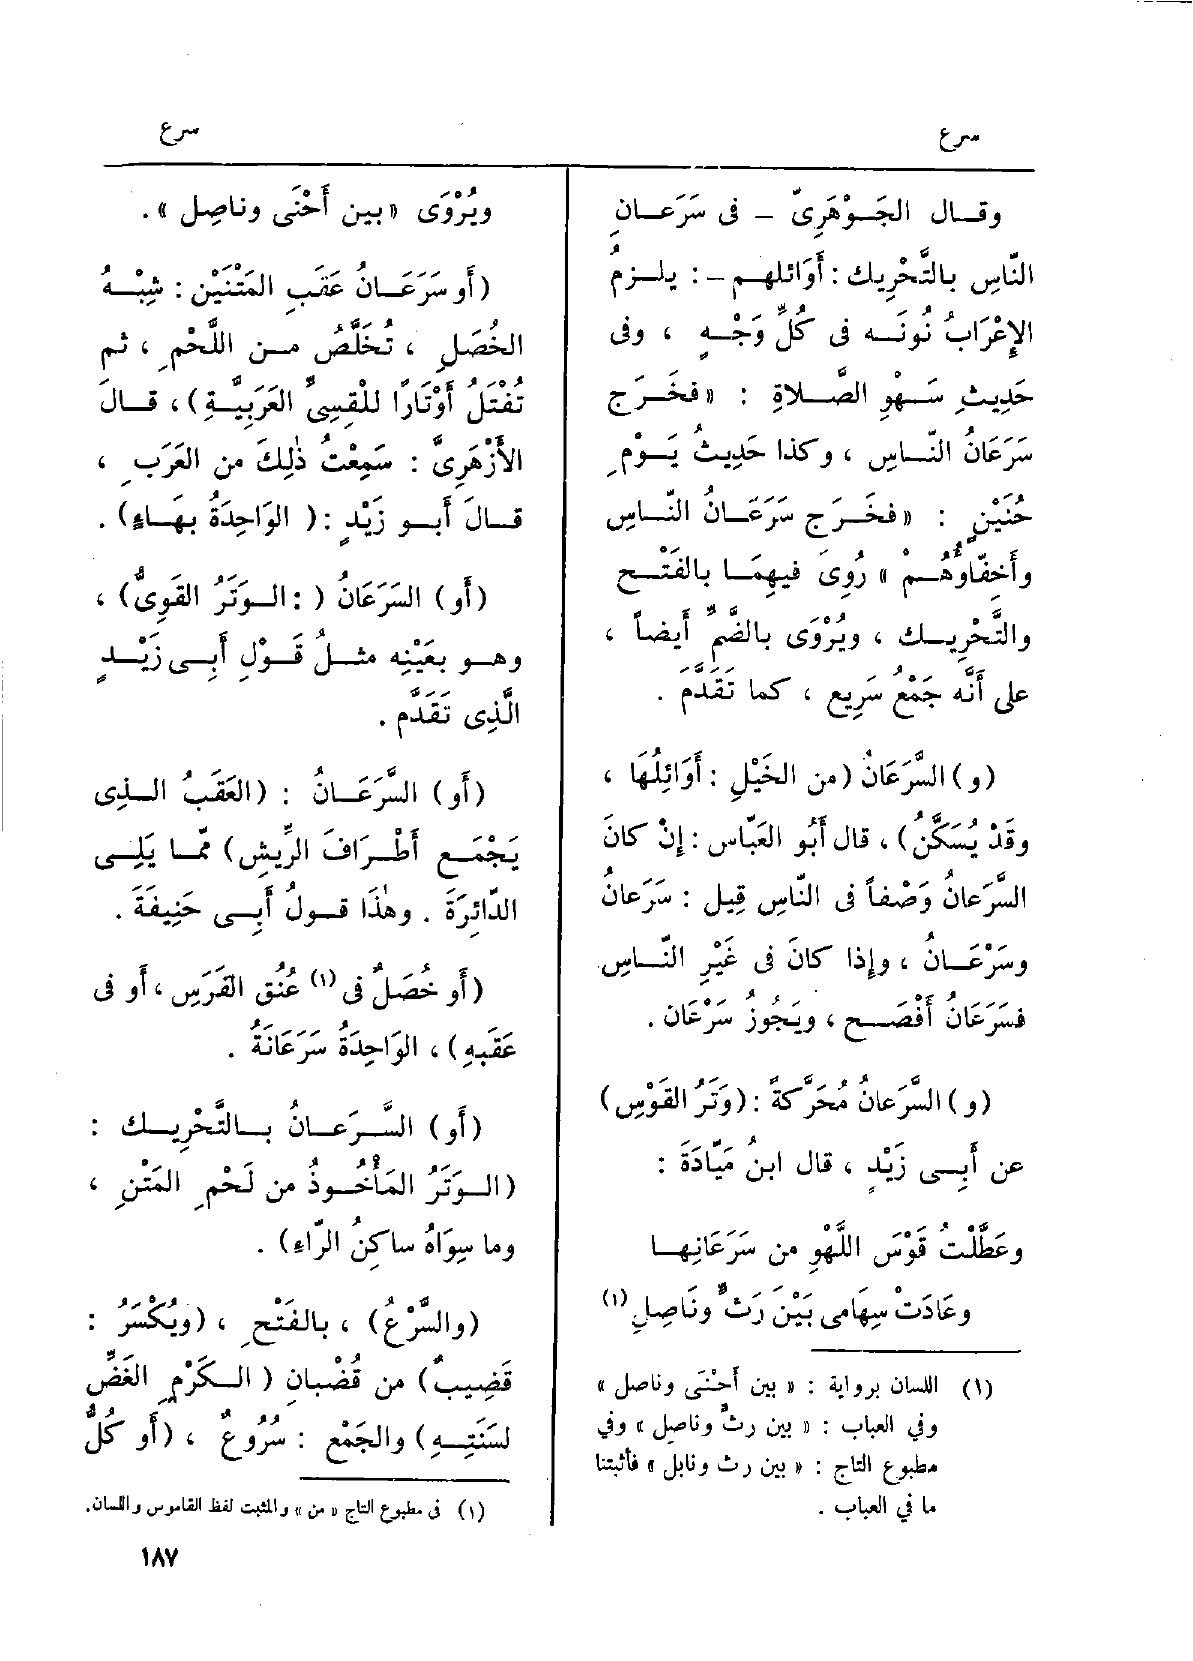 سرع
سرع
وقال الجَوْهَرِىّ - فى سَرَعانِ
النّاسِ بالتَّحْرِيك : أَوَائلهم - : يلزمُ
الإِعْرَابُ نُونَه فى كُلِّ وَجْهٍ ، وفى
حَدِيثِ سَهْوِ الصَّلاةِ : «فخَرَج
سَرَعَانُ النّاسِ ، وكذا حَدِيثُ يَوْمِ
حُنَيْنٍ : «فخَرَج سَرَعَانُ النّاسِ
وأَخِفّاؤُهُمْ » رُوِىَ فيهِمَا بالفَتْحِ
والتَّحْرِيك ، ويُرْوَى بالضَّمِّ أَيضاً ،
على أَنَّه جَمْعُ سَرِيع ، كما تَقَدَّمَ .
(و) السَّرَعَانُ (من الخَيْلِ : أَوَائِلُهَا ،
وقَدْ يُسَكَّنُ) ، قال أَبُو العَبّاس : إِنْ كانَ
السَّرَعانُ وَصْفاً فى النّاسِ قِيل : سَرَعانُ
وسَرْعَانُ ، وإِذا كانَ فى غَيْرِ النّاسِ
فسَرَعَانُ أَفْصَح ، ويَجُوزُ سَرْعَان .
(و) السَّرَعانُ مُحَرَّكةً : (وَتَرُ القَوْسِ)
عن أَبِى زَيْدٍ ، قال ابنُ مَيّادَةَ :
وعَطَّلْتُ قَوْسَ اللَّهْوِ من سَرَعَانِها
وعَادَتْ سِهَامى بَيْنَ رَثٍّ ونَاصِلِ (١)
(١) اللسان برواية : « بين أَحْنَى وناصل »
وفي العباب : « بين رثٍّ وناصِل » وفي
مطبوع التاج : « بين رث ونابل » فأثبتنا
ما في العباب .
ويُرْوَى «بين أَحْنَى وناصِل » .
(أَو سَرَعَانُ عَقَبِ المَتْنَيْنِ : شِبْهُ
الخُصَلِ ، تُخَلَّصُ من اللَّحْمِ ، ثم
تُفْتَلُ أَوْتَارًا للْقِسِىِّ العَرَبِيَّةِ) ، قال
الأَزْهَرِىُّ : سَمِعْتُ ذٰلِكَ من العَرَبِ ،
قالَ أَبو زَيْدٍ : ( الوَاحِدَةُ بهَاءٍ) .
(أَو) السَرَعَانُ ( : الوَتَرُ القَوِىُّ) ،
وهو بعَيْنِه مثلُ قَوْلِ أَبِى زَيْدٍ
الَّذِى تَقَدَّم .
(أَو) السَّرَعَانُ : (العَقَبُ الذى
يَجْمَع أَطْرَافَ الرِّيشِ) ممّا يَلِى
الدّائِرَةَ . وهٰذَا قولُ أَبِى حَنِيفَةَ .
(أَو خُصَلٌ فى (١) عُنُقِ الفَرَسِ ، أَو فى
عَقَبِهِ) ، الوَاحِدَةُ سَرَعَانَةُ .
(أَو) السَّرَعَانُ بالتَّحْرِيك :
(الوَتَرُ المَأْخُوذُ من لَحْمِ المَتْنِ ،
وما سِوَاهُ ساكِنُ الرّاءِ) .
(والسَّرْعُ) ، بالفَتْحِ ، (ويُكْسَرُ :
قَضِيبٌ) من قُضْبانِ ( الكَرْمِ الغَضِّ
لسَنَتِهِ) والجَمْع : سُرُوعٌ ، (أَو كُلُّ
(١) فى مطبوع التاج « من » والمثبت لفظ القاموس واللسان.
١٨٧